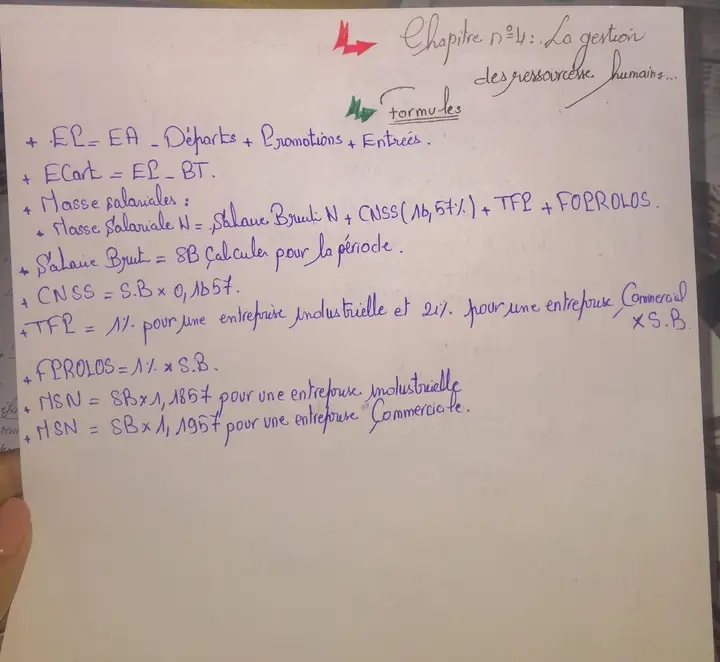 Chapitre n°4: La gestion
des ressourcesse humains...
Formules
+ EP = EA - Départs + Promotions + Entrées.
+ ECart = EP - BT.
+ Masse salariales :
* Masse Salariale N = Salaire Brut N + CNSS (16,57%) + TFP + FOPROLOS.
+ Salaire Brut = SB Calculer pour la période.
+ CNSS = S.B x 0,1657.
+ TFP = 1% pour une entreprise industrielle et 2% pour une entreprise Commercial
x S.B.
+ FPROLOS = 1% x S.B.
+ MSN = SB x 1,1857 pour une entreprise industrielle
+ MSN = SB x 1,1957 pour une entreprise Commerciale.